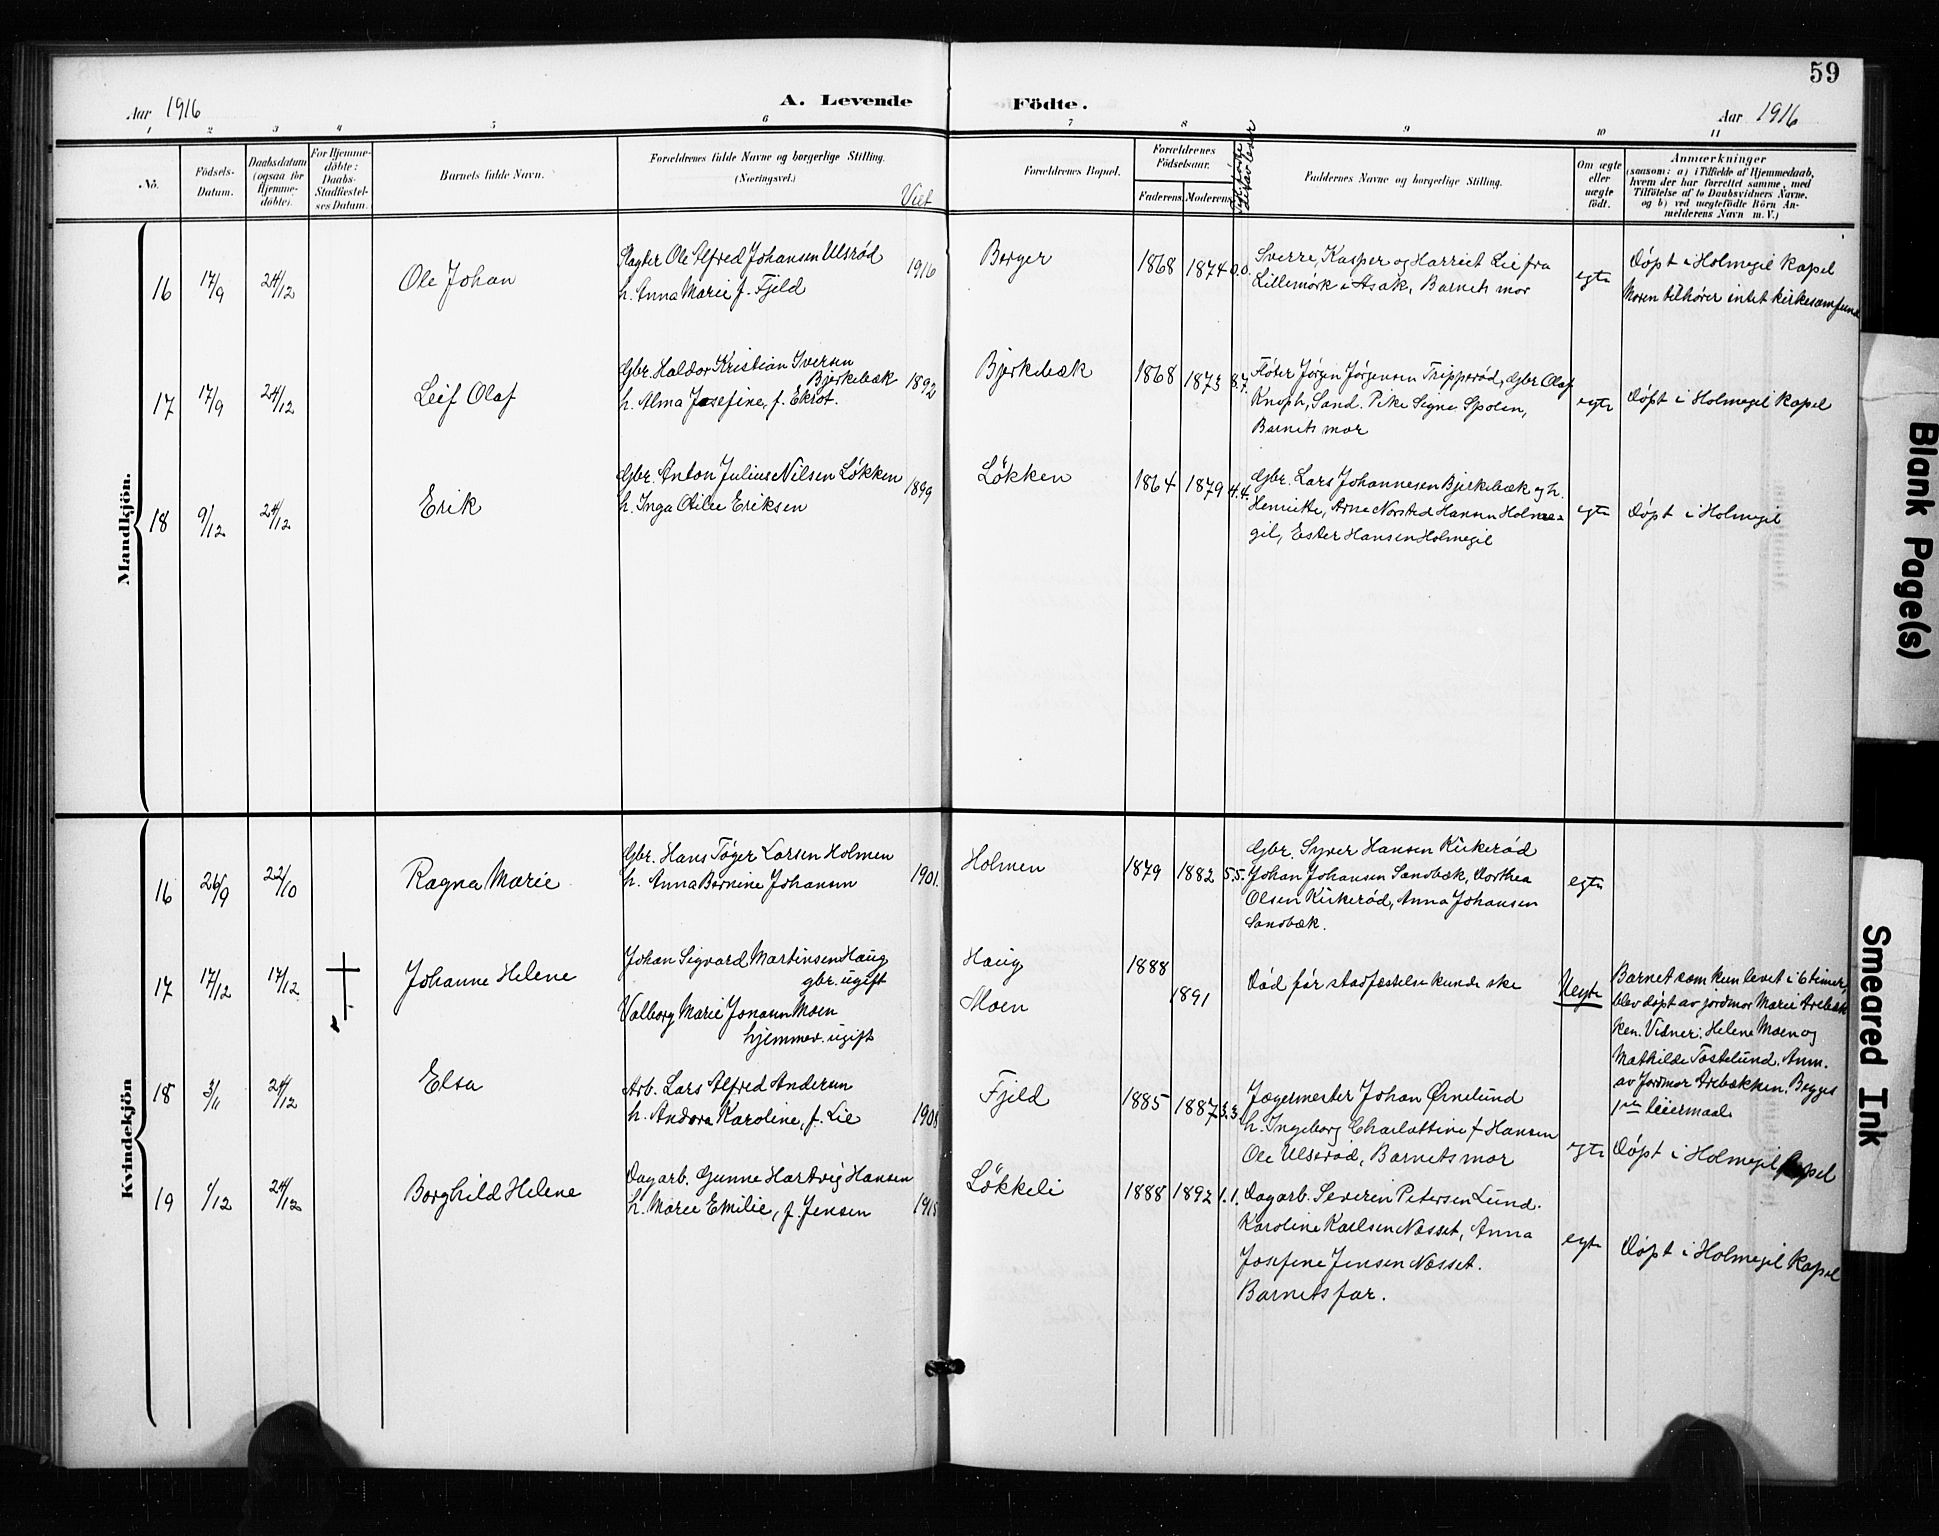 59
Aar 1916
A. Levende Födte.
Aar 1916
1 2 3 4 5 6 7 8 9 10 11
No.
Födsels-Datum.
Daabsdatum (ogsaa for Hjemme-döbte).
For Hjemme-döbte: Daabs-Stadfæstel-ses Datum.
Barnets fulde Navn.
Forældrenes fulde Navne og borgerlige Stilling.
(Næringsvei.)
Viet
Forældrenes Bopæl.
Forældrenes Födselsaar.
Faderens
Moderens
Faddernes Navne og borgerlige Stilling.
Om ægte eller uægte födt.
Anmærkninger
(saasom: a) i Tilfælde af Hjemmedaab,
hvem der har forrettet samme, med
Tilföielse af to Daabsvidners Navne,
og b) ved uægtefödte Börn An-
melderens Navn m. V.)
Mandkjön.
16 17/9 24/12 Ole Johan
Slagter Ole Alfred Johansen Ulsrød
h. Anna Marie f. Fjeld
1916 Berger 1868 1874 0.0.
Sverre, Kasper og Harriet Lie fra
Lillemørk i Asak, Barnets mor
egte
Døpt i Holmegil kapel
Moren tilhører intet kirkesamfund
17 17/9 24/12 Leif Olaf
Gbr. Haldor Kristian Iversen
Bjerkebæk
h. Alma Josefine, f. Ekrot.
1892 Bjerkebæk 1868 1873 8.7.
Fløter Jørgen Jørgensen Tripperød, Gbr Olaf
Knoph, Sand. Pike Signe Spolen,
Barnets mor
egte
Døpt i Holmegil kapel
18 9/12 24/12 Erik
Gbr. Anton Julius Nilsen Løkken
h. Inga Otilie Eriksen
1899 Løkken 1864 1879 4.4.
Gbr. Lars Johannesen Bjerkebæk og h.
Henriette, Arne Norsted Hansen Holme-
gil, Ester Hansen Holmegil
egte
Døpt i Holmegil
Kvindekjön
16 26/9 22/10 Ragna Marie
Gbr. Hans Tøger Larsen Holmen
h. Anna Bernine Johansen
1901. Holmen 1879 1882 5.5.
Gbr. Syver Hansen Kirkerød
Johan Johansen Sandbæk, Dorthea
Olsen Kirkerød, Anna Johansen
Sandbæk.
egte
17 17/12 17/12 Johanne Helene
Johan Sigvard Martinsen Haug
gbr. ugift
Valborg Marie Jonassen Moen
hjemmev. ugift
Haug
Moen
1888
1891
Død før stadfæstelse kunde ske
Uegte
Barnet som kun levet i 6 timer,
blev døpt av jordmor Marie Arebæk-
ken. Vidner: Helene Moen og
Mathilde Tostelund. Anm.
av Jordmor Arebækken. Begges
1ste leiermaal.
18 3/11 24/12 Elsa
Arb. Lars Alfred Andersen
h. Andora Karoline, f. Lie
1908 Fjeld 1885 1887 3.3.
Jægermester Johan Ørnelund
h. Ingeborg Charlottine f Hansen
Ole Ulsrød, Barnets mor
egte
Døpt i Holmegil kapel
19 1/12 24/12 Borghild Helene
Dagarb. Gunne Hartvig Hansen
h. Marie Emilie, f. Jensen
1915 Løkkeli 1888 1892 1.1.
Dagarb. Severin Petersen Lund.
Karoline Karlsen Næsset, Anna
Josefine Jensen Næsset.
Barnets far.
egte
Døpt i Holmegil kapel
Blank Page(s)
Smeared Ink